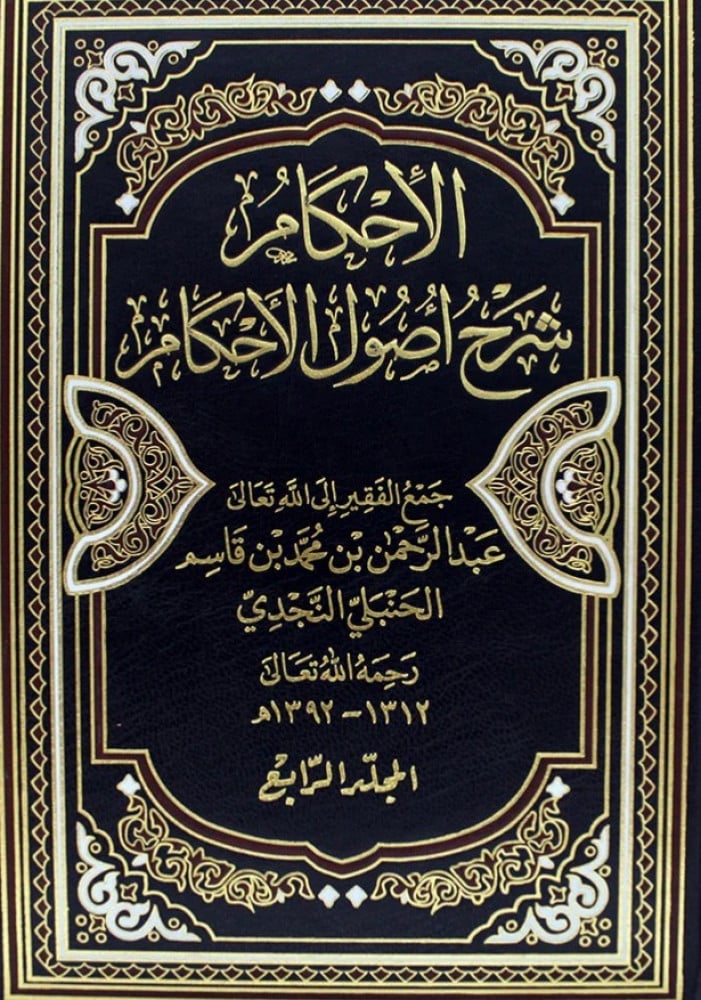 الأَحْكَامُ
شَرْحُ أُصُولِ الأَحْكَامِ
جَمْعُ الفَقِيرِ إِلَى اللَّهِ تَعَالَى
عَبْدِ الرَّحْمٰنِ بْنِ مُحَمَّدِ بْنِ قَاسِمٍ
الحَنْبَلِيِّ النَّجْدِيِّ
رَحِمَهُ اللَّهُ تَعَالَى
١٣١٢ - ١٣٩٢هـ
المجلد الرَّابع